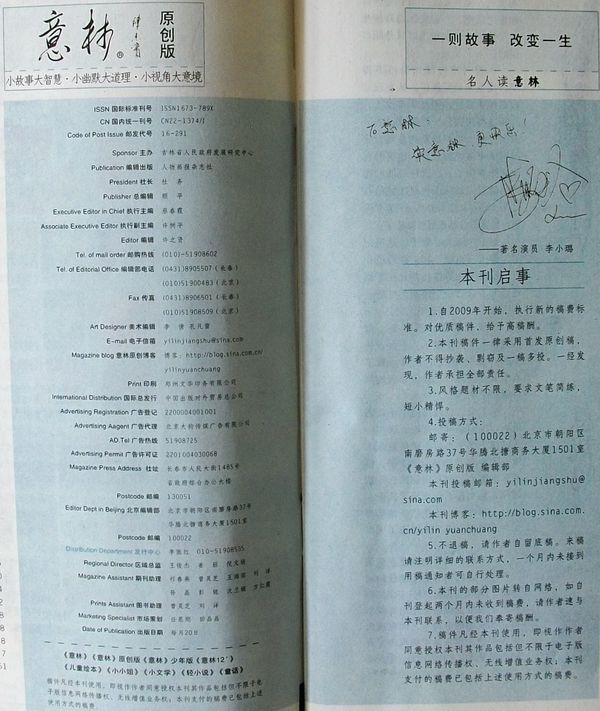 意林
原创版
小故事大智慧·小幽默大道理·小视角大意境
ISSN 国际标准刊号 ISSN1673-789X
CN 国内统一刊号 CN22-1374/I
Code of Post Issue 邮发代号 16-291
Sponsor 主办 吉林省人民政府发展研究中心
Publication 编辑出版 人物画报杂志社
President 社长 杜 务
Publisher 总编辑 顾 平
Executive Editor in Chief 执行主编 蔡春霞
Associate Executive Editor 执行副主编 许树平
Editor 编辑 许之贤
Tel. of mail order 邮购热线 (010)-51908602
Tel. of Editorial Office 编辑部电话 (0431)8905507(长春)
(010)51900483(北京)
Fax 传真 (0431)8906501(长春)
(010)51908509(北京)
Art Designer 美术编辑 李 倩 孔凡雷
E-mail 电子信箱 yilinjiangshu@sina.com
Magazine blog 意林原创博客 博客:http://blog.sina.com.cn/
yilinyuanchuang
Print 印刷 郑州文华印务有限公司
International Distribution 国际总发行 中国出版对外贸易总公司
Advertising Registration 广告登记 2200004001001
Advertising Aagent 广告代理 北京大钧传媒广告有限公司
AD.Tel 广告热线 51908725
Advertising Permit 广告许可证 2201004030068
Magazine Press Address 社址 长春市人民大街1485号
省政府综合办公大楼
Postcode 邮编 130051
Editor Dept in Beijing 北京编辑部 北京市朝阳区南磨房路37号
华腾北搪商务大厦1501室
Postcode 邮编 100022
Distribution Department 发行中心 李振红 010-51908535
Regional Director 区域总监
Magazine Assistant 期刊助理
Prints Assistant 图书助理 曹灵芝 刘 洋
Marketing Specialist 市场策划
Date of Publication 出版日期 每月20日
《意林》《意林》原创版《意林》少年版《意林12+》
《儿童绘本》《小小姐》《小文学》《轻小说》《童话》
稿件凡经本刊使用,即视作作者同意授权本刊其作品包括但不限于电
子版信息网络传播权、无线增值业务权;本刊支付的稿费已包括上述
使用方式的稿费。
一则故事 改变一生
名人读意林
——著名演员 李小璐
本刊启事
1.自2009年开始,执行新的稿费
标准。对优质稿件,给予高稿酬。
2.本刊稿件一律采用首发原创稿,
作者不得抄袭、剽窃及一稿多投。一经发
现,作者承担全部责任。
3.风格题材不限,要求文笔简练,
短小精悍。
4.投稿方式:
邮寄:(100022)北京市朝阳区
南磨房路37号华腾北搪商务大厦1501室
《意林》原创版 编辑部
本刊投稿邮箱:yilinjiangshu@
sina.com
本刊博客:http://blog.sina.com.
cn/yilin yuanchuang
5.不退稿,请作者自留底稿。来稿
请注明详细的联系方式,一个月内未接到
用稿通知者可自行处理。
6.本刊的部分图片转自网络,如自
刊登起两个月内未收到稿费,请作者速与
本刊联系,以便我们奉寄稿酬。
7.稿件凡经本刊使用,即视作作者
同意授权本刊其作品包括但不限于电子版
信息网络传播权、无线增值业务权;本刊
支付的稿费已包括上述使用方式的稿费。